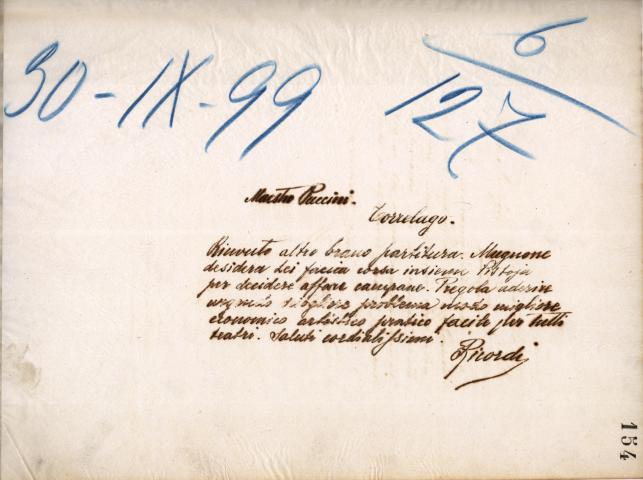 30-IX-99
6/127
Maestro Puccini.
Torrelago.
Ricevuto altro brano partitura. Mugnone
desidera Lei faccia corsa insieme Pistoja
per decidere affare campane. Pregola aderire
sciogliere problema modo migliore
economico artistico pratico facile per tutti
teatri. Saluti cordialissimi.
Ricordi
154